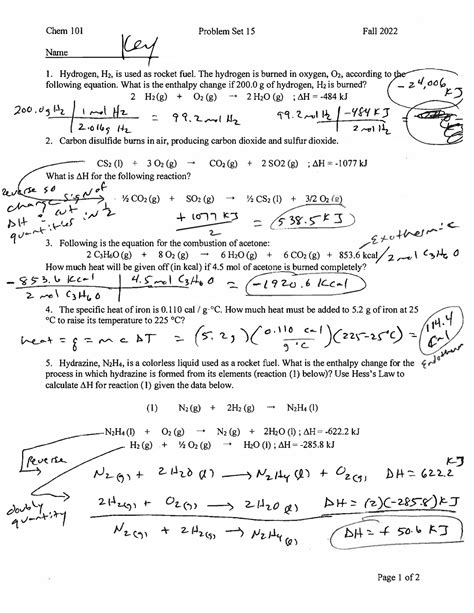 Chem 101 Problem Set 15 Fall 2022
Key
Name
1. Hydrogen, H₂, is used as rocket fuel. The hydrogen is burned in oxygen, O₂, according to the
following equation. What is the enthalpy change if 200.0 g of hydrogen, H₂ is burned?
-24,006 kJ
2 H₂(g) + O₂ (g) → 2 H₂O (g) ; ΔH = -484 kJ
200.0g H₂ | 1 mol H₂ = 99.2 mol H₂ 99.2 mol H₂ | -484 kJ
2.016g H₂ 2 mol H₂
2. Carbon disulfide burns in air, producing carbon dioxide and sulfur dioxide.
CS₂ (l) + 3 O₂ (g) → CO₂ (g) + 2 SO2 (g) ; ΔH = -1077 kJ
What is ΔH for the following reaction?
reverse so
change sign of
ΔH & cut
quantities in ½
½ CO₂ (g) + SO₂ (g) → ½ CS₂ (l) + 3/2 O₂ (g)
+ 1077 kJ = 538.5 kJ
2
3. Following is the equation for the combustion of acetone:
Exothermic
2 C₃H₆O (g) + 8 O₂ (g) → 6 H₂O (g) + 6 CO₂ (g) + 853.6 kcal / 2 mol C₃H₆O
How much heat will be given off (in kcal) if 4.5 mol of acetone is burned completely?
-853.6 kcal | 4.5 mol C₃H₆O = -1920.6 kcal
2 mol C₃H₆O
4. The specific heat of iron is 0.110 cal / g·°C. How much heat must be added to 5.2 g of iron at 25
°C to raise its temperature to 225 °C?
heat = q = m c ΔT = (5.2 g)(0.110 cal / g °C)(225-25°C) = 114.4 cal
Endother
5. Hydrazine, N₂H₄, is a colorless liquid used as a rocket fuel. What is the enthalpy change for the
process in which hydrazine is formed from its elements (reaction (1) below)? Use Hess's Law to
calculate ΔH for reaction (1) given the data below.
(1) N₂ (g) + 2H₂ (g) → N₂H₄ (l)
N₂H₄ (l) + O₂ (g) → N₂ (g) + 2H₂O (l) ; ΔH = -622.2 kJ
H₂ (g) + ½ O₂ (g) → H₂O (l) ; ΔH = -285.8 kJ
Reverse
N₂(g) + 2 H₂O (l) → N₂H₄ (l) + O₂(g), ΔH = 622.2 kJ
doubly
quantity
2 H₂(g) + O₂(g) → 2 H₂O (l) ΔH = (2)(-285.8) kJ
N₂(g) + 2H₂(g) → N₂H₄(l) ΔH = + 50.6 kJ
Page 1 of 2